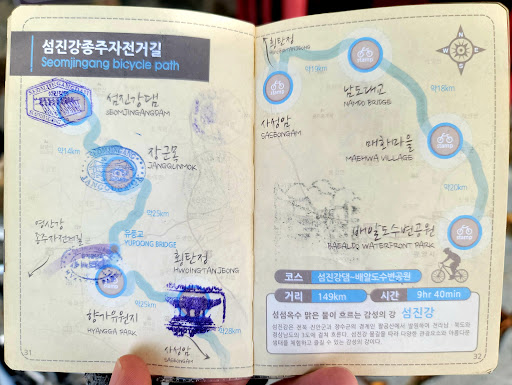 섬진강종주자전거길
Seomjingang bicycle path
섬진강댐
SEOMJINGANGDAM
약14km
장군목
JANGGUNMOK
약25km
영산강
종주자전거길
유풍교
YUPOONG BRIDGE
횡탄정
HWOINGTANJEONG
향가유원지
HYANGGA PARK
약25km
사성암
SASEONGAM
31
횡탄정
HWOINGTANJEONG
stamp
약19km
사성암
SASEONGAM
stamp
남도대교
NAMDO BRIDGE
약18km
stamp
매화마을
MAEHWA VILLAGE
약20km
stamp
배알도수변공원
BAEALDO WATERFRONT PARK
N
E
S
W
코스 섬진강댐~배알도수변공원
거리 149km 시간 9hr 40min
섬섬옥수 맑은 물이 흐르는 감성의 강 섬진강
32